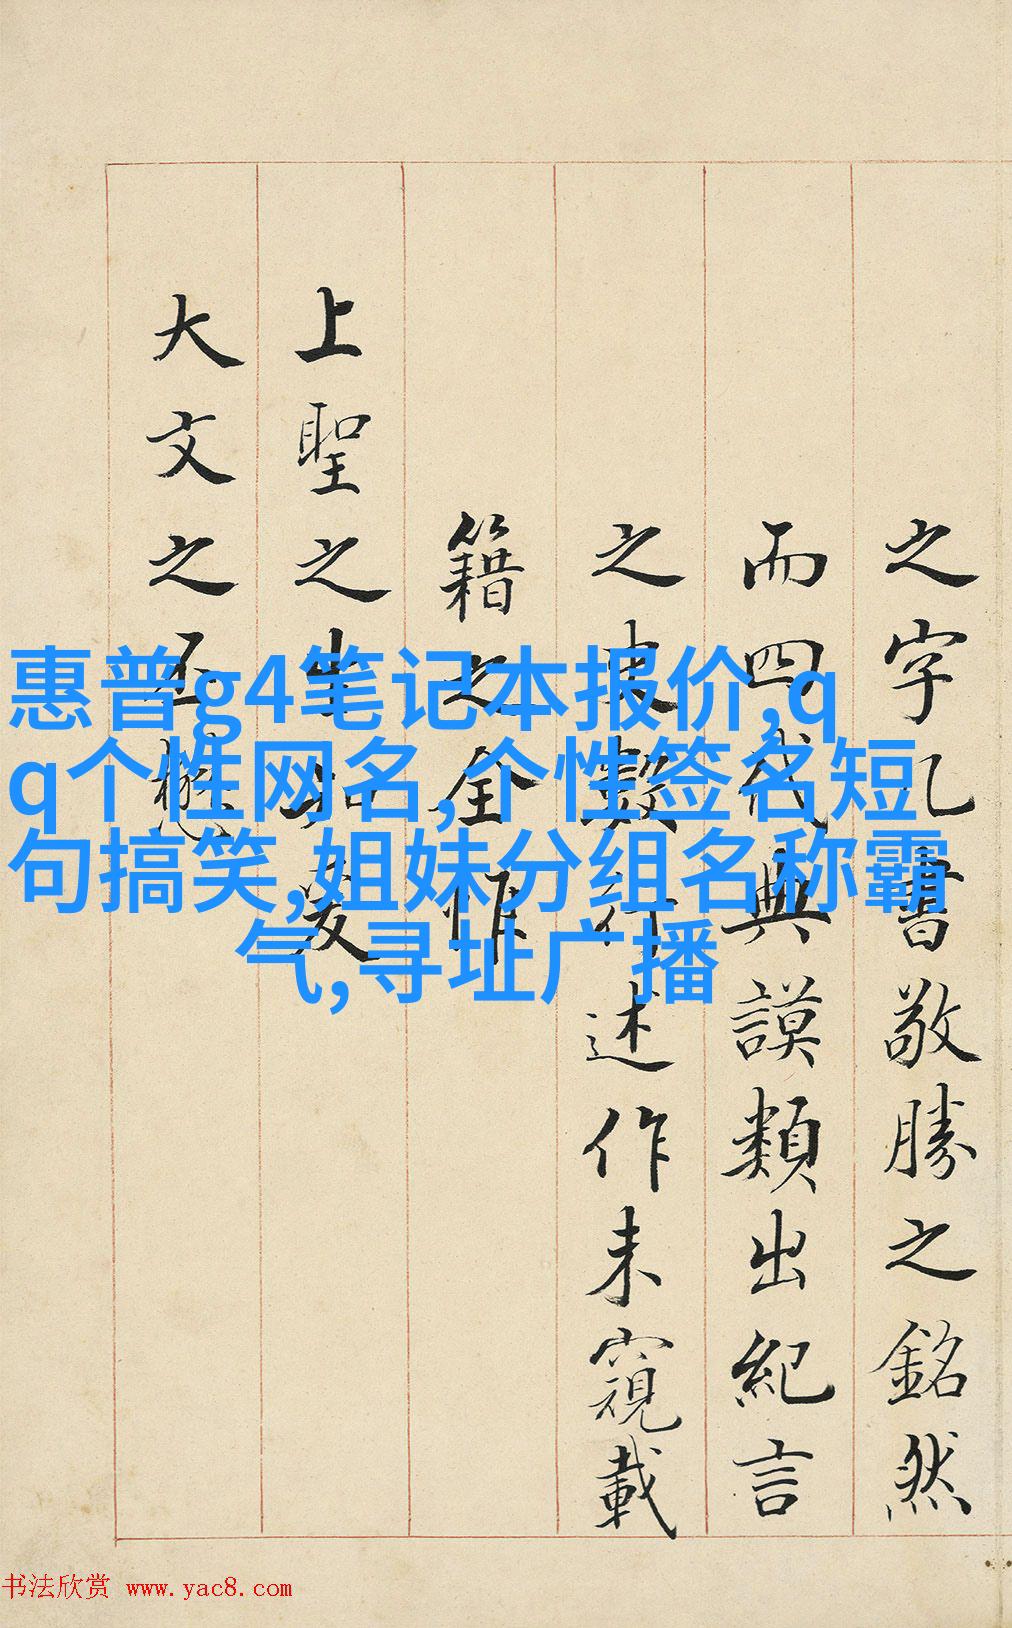 之字几書敬勝之銘然
而四代典謨類出紀言
之史數行述作未窺載
籍之全惟
上聖之生知發
大文之丕懋
惠普g4笔记本报价,q
q个性网名,个性签名短
句搞笑,姐妹分组名称霸
气,寻址广播
书法欣赏 www.yac8.com